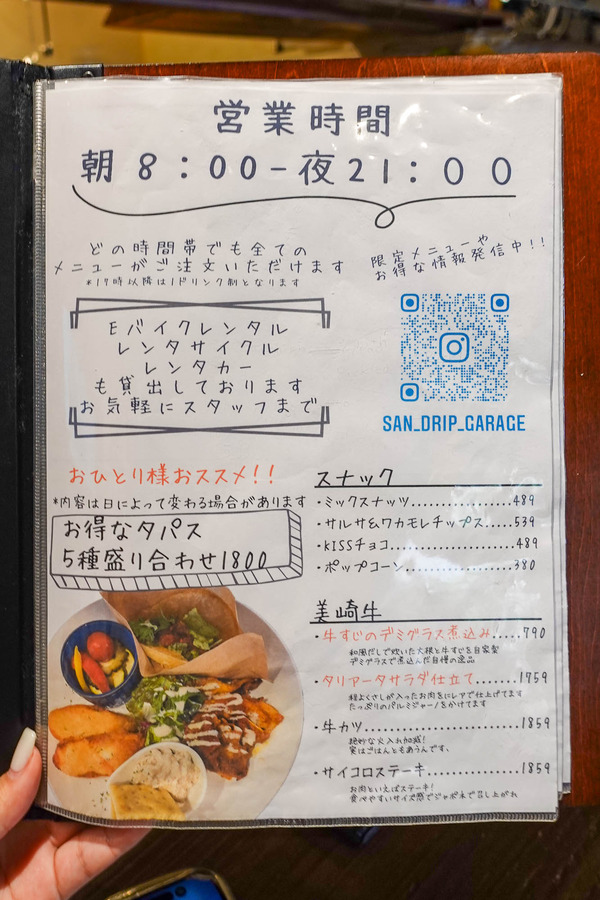 営業時間
朝 8：00-夜21：００
どの時間帯でも全ての
メニューがご注文いただけます
*17時以降は1ドリンク制となります
限定メニューや
お得な情報発信中!!
Eバイクレンタル
レンタサイクル
レンタカー
も貸出しております
お気軽にスタッフまで
SAN_DRIP_GARAGE
おひとり様おススメ!!
*内容は日によって変わる場合があります
お得なタパス
5種盛り合わせ1800
スナック
・ミックスナッツ....................489
・サルサ&ワカモレチップス.....539
・KISSチョコ.......................489
・ポップコーン.....................380
美崎牛
・牛すじのデミグラス煮込み.....790
和風だしで炊いた大根と牛すじを自家製
デミグラスで煮込んだ自慢の逸品
・タリアータサラダ仕立て.......1759
程よくさしが入ったお肉をレアで仕上げてます
たっぷりのパルミジャーノをかけてます
・牛カツ............................1859
絶妙な火入れ加減!
実はごはんともあうんです、
・サイコロステーキ................1859
お肉といえばステーキ!
食べやすいサイズ感でジャポネで召し上がれ